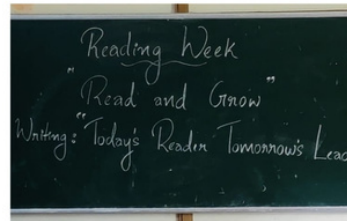 Reading Week
"Read and Grow"
Writing: "Today's Reader Tomorrow's Lead